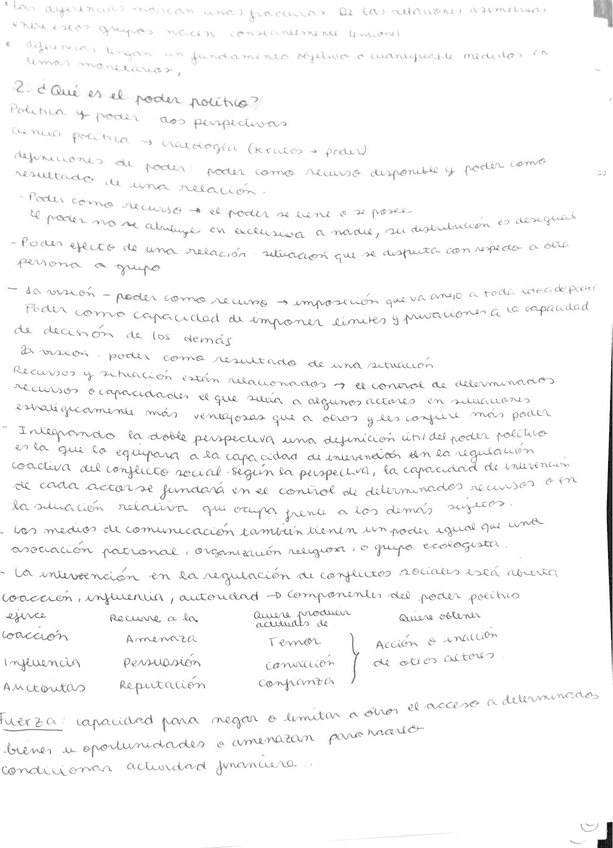 • Las diferencias marcan unas fracturas. De las relaciones asimetricas
entre estos grupos nacen constantemente tensiones
• diferencias tengan un fundamento objetivo o cuantificable medidos en
temas monetarios,
2. ¿Qué es el poder político?
Política y poder dos perspectivas
Ciencia política → cratología (kratos → poder)
definiciones de poder: poder como recurso disponible y poder como
resultado de una relación.
- Poder como recurso → el poder se tiene o se posee
El poder no se atribuye en exclusiva a nadie, su distribución es desigual
- Poder efecto de una relación situación que se disfruta con respecto a otra
persona o grupo
- 1a visión - poder como recurso → imposición que va anejo a toda idea de poder
Poder como capacidad de imponer límites y privaciones a la capacidad
de decisión de los demás
2a visión. poder como resultado de una situación
Recursos y situación están relacionados → el control de determinados
recursos o capacidades el que sitúa a algunos actores en situaciones
estratégicamente más ventajosas que a otros y les confiere más poder
- Integrando la doble perspectiva una definición útil del poder político
es la que lo equipara a la capacidad de intervención en la regulación
coactiva del conflicto social. Según la perspectiva, la capacidad de intervención
de cada actor se fundará en el control de determinados recursos o en
la situación relativa que ocupa frente a los demás sujetos.
- Los medios de comunicación también tienen un poder igual que una
asociación patronal, organización religiosa, o grupo ecologista.
- La intervención en la regulación de conflictos sociales está abierta
coacción, influencia, autoridad → componentes del poder político
ejerce Recurre a la Quiere producir actitudes de Quiere obtener
coacción Amenaza Temor Acción o inacción
Influencia Persuasión convicción de otros actores.
Auctoritas Reputación confianza
Fuerza: capacidad para negar o limitar a otros el acceso a determinados
bienes u oportunidades o amenazan para hacerlo
condicionar actividad financiera...